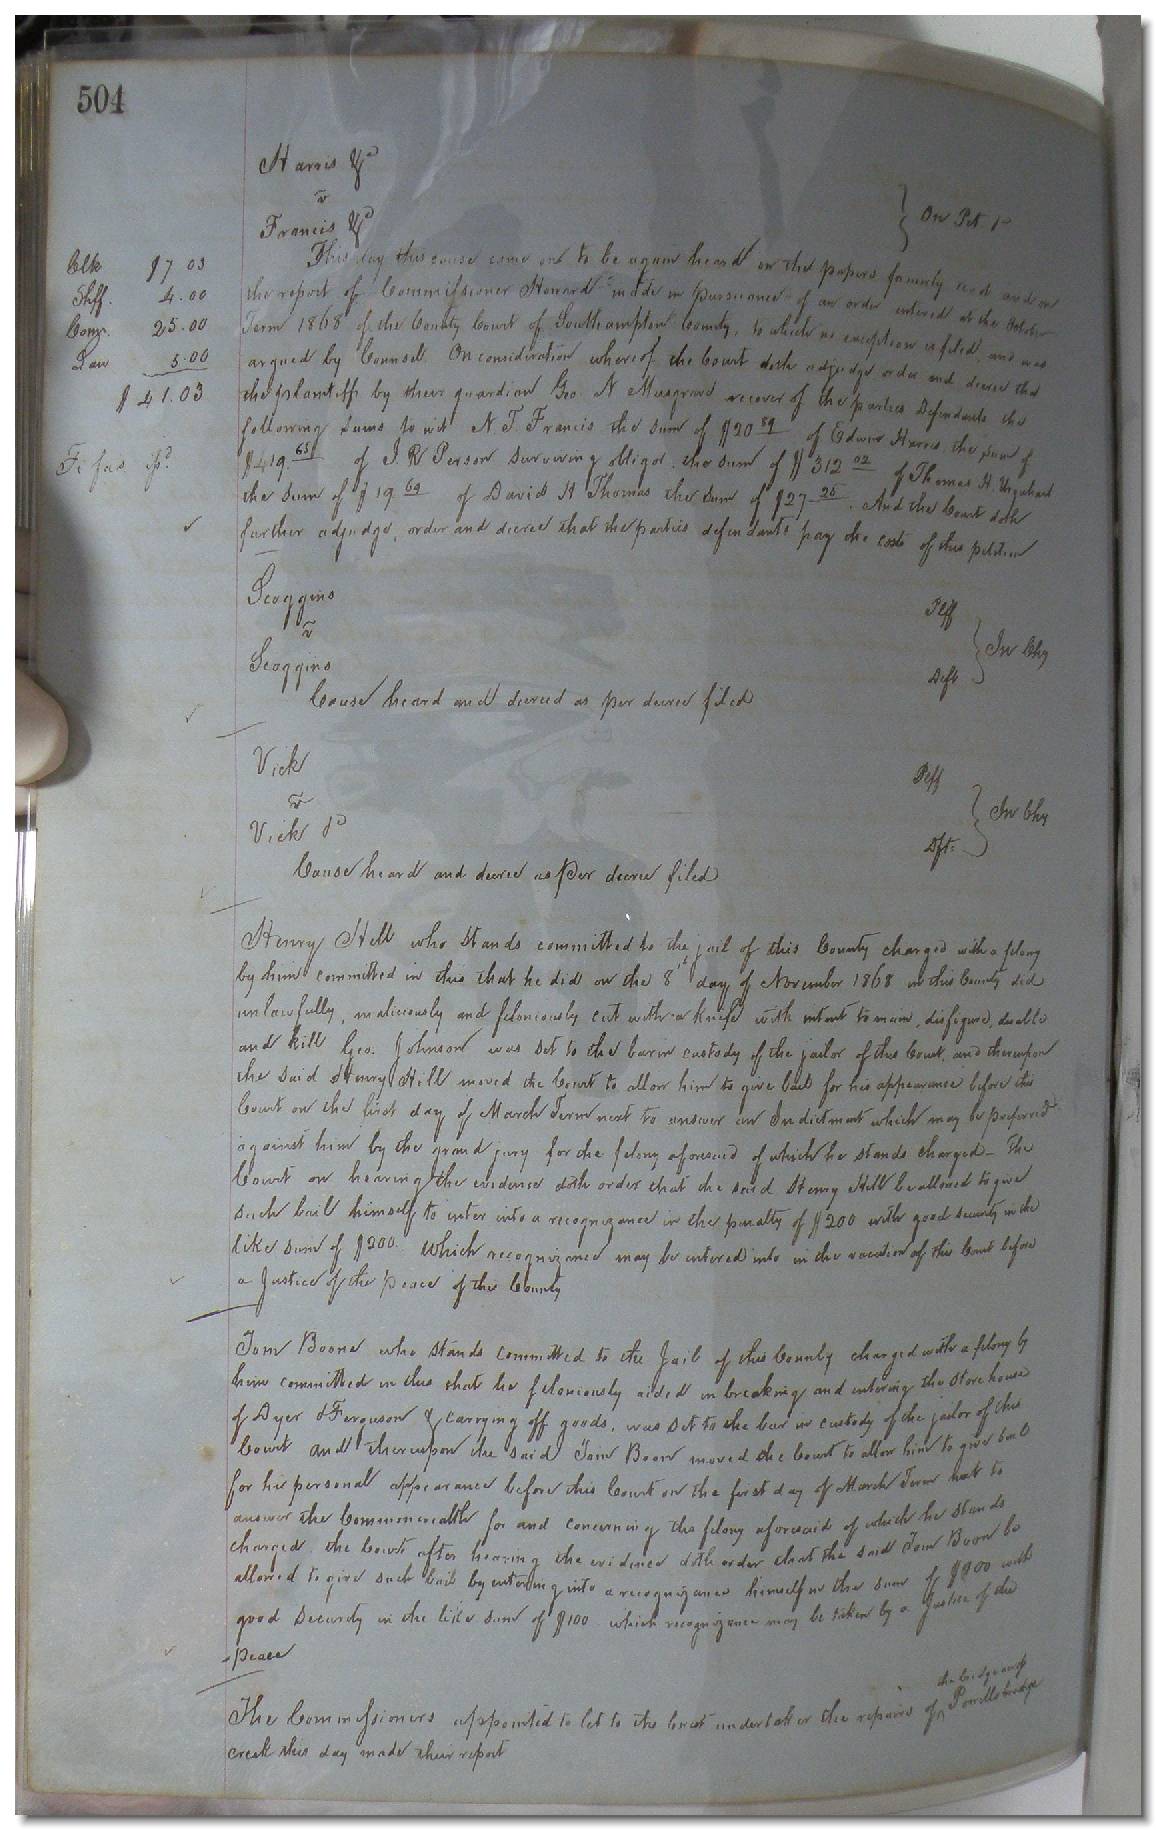 504
Harris &c
v
Francis &c
} On Pet &c
Clk $7.03
Shff. 4.00
Comr. 25.00
Law 5.00
$41.03
Fi fas
This day this cause came on to be again heard on the papers formerly read and on
the report of Commissioner Howard made in pursuance of an order entered at the October
Term 1868 of the County Court of Southampton County, to which no exception is filed, and was
argued by Counsel. On consideration whereof the Court doth adjudge order and decree that
the plaintiffs by their guardian Geo. N Musgrave recover of the parties Defendants the
following sums to wit N. T. Francis the sum of $20 89 of Edwin Harris, the sum of
$419. 65 of J. R Person surviving obligor the sum of $312 02 of Thomas H. Urquhart
the sum of $19 69 of David H Thomas the sum of $27 25. And the Court doth
further adjudge, order and decree that the parties defendants pay the costs of this petition
Scoggins Plff
v } In Chy
Scoggins Deft
Cause heard and decreed as per decree filed
Vick Plff
v } In Chy
Vick &c Dft.
Cause heard and decree as per decree filed
Henry Hill who stands committed to the jail of this County charged with a felony
by him committed in this that he did on the 8th day of November 1868 in this County did
unlawfully, maliciously and feloniously cut with a knife with intent to maim, disfigure, disable
and kill Geo. Johnson was set to the bar in custody of the jailor of this Court, and thereupon
the said Henry Hill moved the Court to allow him to give bail for his appearance before this
Court on the first day of March Term next to answer an Indictment which may be preferred
against him by the grand jury for the felony aforesaid of which he stands charged – The
Court on hearing the evidence doth order that the said Henry Hill be allowed to give
such bail himself to enter into a recognizance in the penalty of $200 with good security in the
like sum of $200. Which recognizance may be entered into in the vacation of this Court before
a Justice of the peace of this County
Tom Boone who stands committed to the Jail of this County charged with a felony by
him committed in this that he feloniously aided in breaking and entering the Storehouse
of Dyer & Ferguson & carrying off goods, was set to the bar in custody of the jailor of this
Court and thereupon the said Tom Boon moved the Court to allow him to give bail
for his personal appearance before this Court on the first day of March Term next to
answer the Commonwealth for and concerning the felony aforesaid of which he stands
charged. the Court after hearing the evidence doth order that the said Tom Boon be
allowed to give such bail by entering into a recognizance himself in the sum of $100 with
good security in the like sum of $100 which recognizance may be taken by a Justice of the
peace
the bridge across
The Commissioners appointed to let to the lowest undertaker the repairs of Powells bridge
creek this day made their report